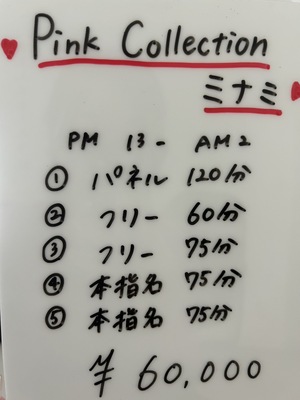 Pink Collection
ミナミ
PM 13 - AM 2
① パネル 120分
② フリー 60分
③ フリー 75分
④ 本指名 75分
⑤ 本指名 75分
¥ 60,000